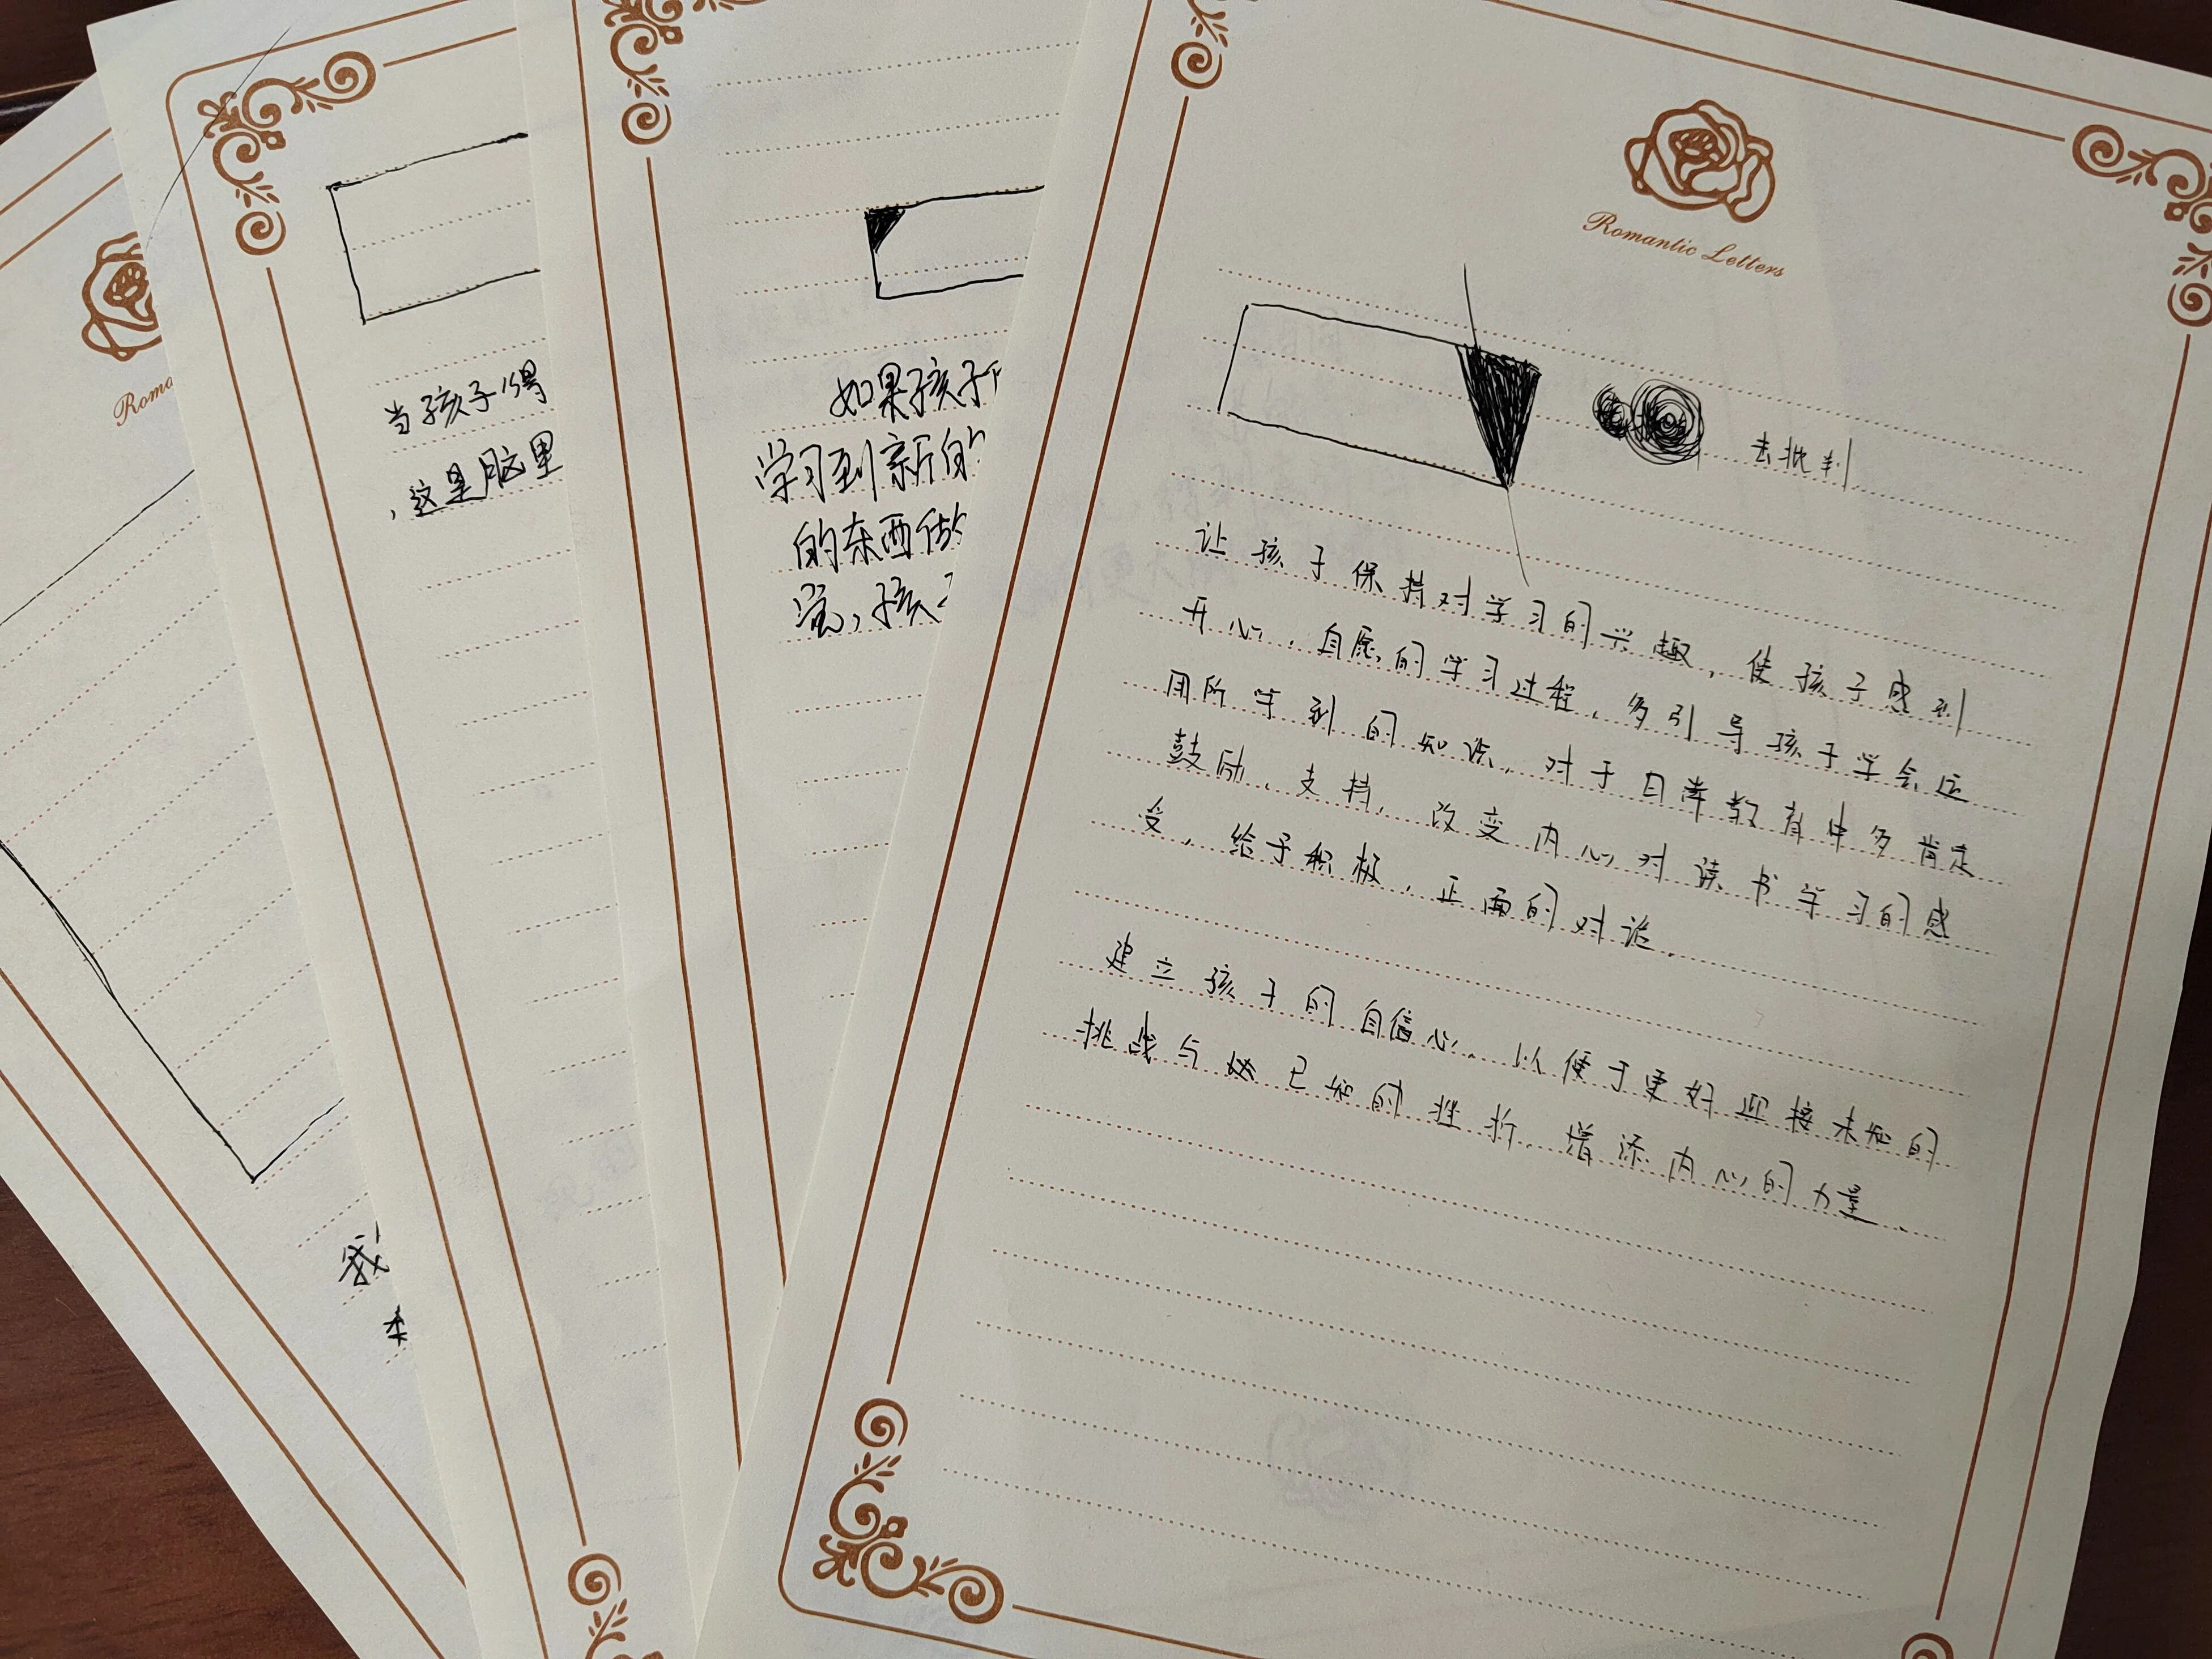 Roma
我
当孩子得
，这是脑里
如果孩子
学习到新的
的东西做
觉，孩子
Romantic Letters
去批判
让孩子保持对学习的兴趣，使孩子感到
开心、自愿的学习过程，多引导孩子学会运
用所学到的知识，对于日常教育中多肯定
鼓励、支持，改变内心对读书学习的感
受，给予积极，正面的对话。
建立孩子的自信心、以便于更好迎接未知的
挑战与 已知的挫折、增添内心的力量、